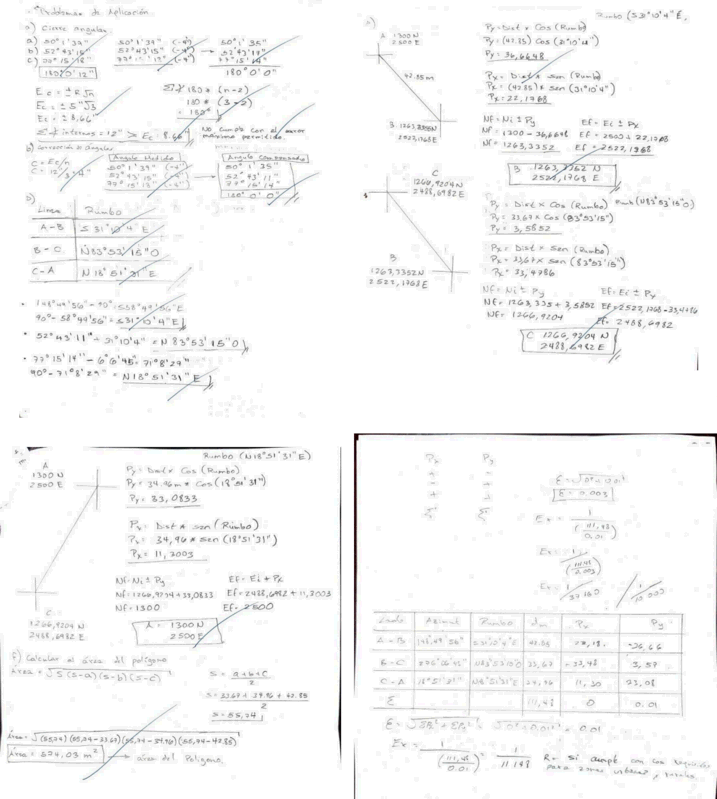 Problemas de Aplicación
a) Cierre angular
a) 50° 1' 39" 50° 1' 39" (-4") 50° 1' 35"
b) 52° 43' 15" 52° 43' 15" (-4") → 52° 43' 11"
c) 77° 15' 18" 77° 15' 18" (-4") 77° 15' 14"
180° 0' 12" 180° 0' 0"
Ec = ± R√n
Ec = ± 5"√3
Ec = ± 8,66"
Σ∢ 180 * (n-2)
180 * (3-2)
= 180°
Σ∢ internos = 12" > Ec: 8.66 No cumple con el error máximo permitido.
b) Corrección angular
C = Ec/n
C = 12/3 = 4"
Ángulo Medido
50° 1' 39" (-4")
52° 43' 15" (-4")
77° 15' 18" (-4")
Ángulo Compensado
50° 1' 35"
52° 43' 11"
77° 15' 14"
180° 0' 0"
Línea Rumbo
A-B S 31° 10' 4" E
B-C N 83° 53' 15" O
C-A N 18° 51' 31" E
148° 49' 56" - 90° = 58° 49' 56" E
90° - 58° 49' 56" = S 31° 10' 4" E
52° 43' 11" + 31° 10' 4" = N 83° 53' 15" O
77° 15' 14" - 6° 6' 45" = 71° 8' 29"
90° - 71° 8' 29" = N 18° 51' 31" E
Rumbo (S 31° 10' 4" E
A
1300 N
2500 E
42.85 m
B. 1263,3352 N
2522,1768 E
Py = Dist x Cos (Rumbo)
Py = (42.85) Cos (31° 10' 4")
Py = 36,6648
Px = Dist * sen (Rumbo)
Px = (42.85) * sen (31° 10' 4")
Px = 22,1768
Nf = Ni ± Py Ef = Ei ± Px
Nf = 1300 - 36,6648 Ef = 2500 + 22,1768
Nf = 1263,3352 Ef = 2522,1768
B 1263,3352 N
2522,1768 E
C
1266,9204 N
2488,6982 E
B
1263,3352 N
2522,1768 E
Py = Dist x Cos (Rumbo) Rumb (N 83° 53' 15" O)
Py = 33,67 x Cos (83° 53' 15")
Py = 3,5852
Px = Dist x Sen (Rumbo)
Px = 33,67 x sen (83° 53' 15")
Px = 33,4786
Nf = Ni ± Py Ef = Ei ± Px
Nf = 1263,335 + 3,5852 Ef = 2522,1768 - 33,4786
Nf = 1266,9204 Ef = 2488,6982
C 1266,9204 N
2488,6982 E
Rumbo (N 18° 51' 31" E)
A
1300 N
2500 E
C
1266,9204 N
2488,6982 E
Py = Dist x Cos (Rumbo)
Py = 34,96 m * Cos (18° 51' 31")
Py = 33,0833
Px = Dist * sen (Rumbo)
Px = 34,96 * sen (18° 51' 31")
Px = 11,3003
Nf = Ni ± Py Ef = Ei + Px
Nf = 1266,9204 + 33,0833 Ef = 2488,6982 + 11,3003
Nf = 1300 Ef = 2500
A = 1300 N
2500 E
f) Calcular el área del polígono
Área = √S (s-a) (s-b) (s-c)
S = a+b+c / 2
S = 33.67 + 34.96 + 42.85 / 2
S = 55,74
Área = √(55,74) (55,74 - 33.67) (55,74 - 34.96) (55,74 - 42.85)
Área = 574,03 m² → área del Polígono.
Px Py
+ +
Σ Σ
E = 0.003
Ex = 1
Lado Azimut Rumbo dm Px Py
A-B 148° 49' 56" S 31° 10' 4" E 42.85 22,18 -36,66
B-C 276° 06' 45" N 83° 53' 15" O 33,67 -33,48 3,57
C-A 18° 51' 31" N 18° 51' 31" E 34,96 11,30 33,08
Σ 111,48 0 0.01
E = √ΣPx² + ΣPy² = √0² + 0.01² = 0.01
Ex = 1 / (111,48 / 0.01) = 1 / 11 148 R= Si cumple con los requisitos
para zonas urbanas y rurales.